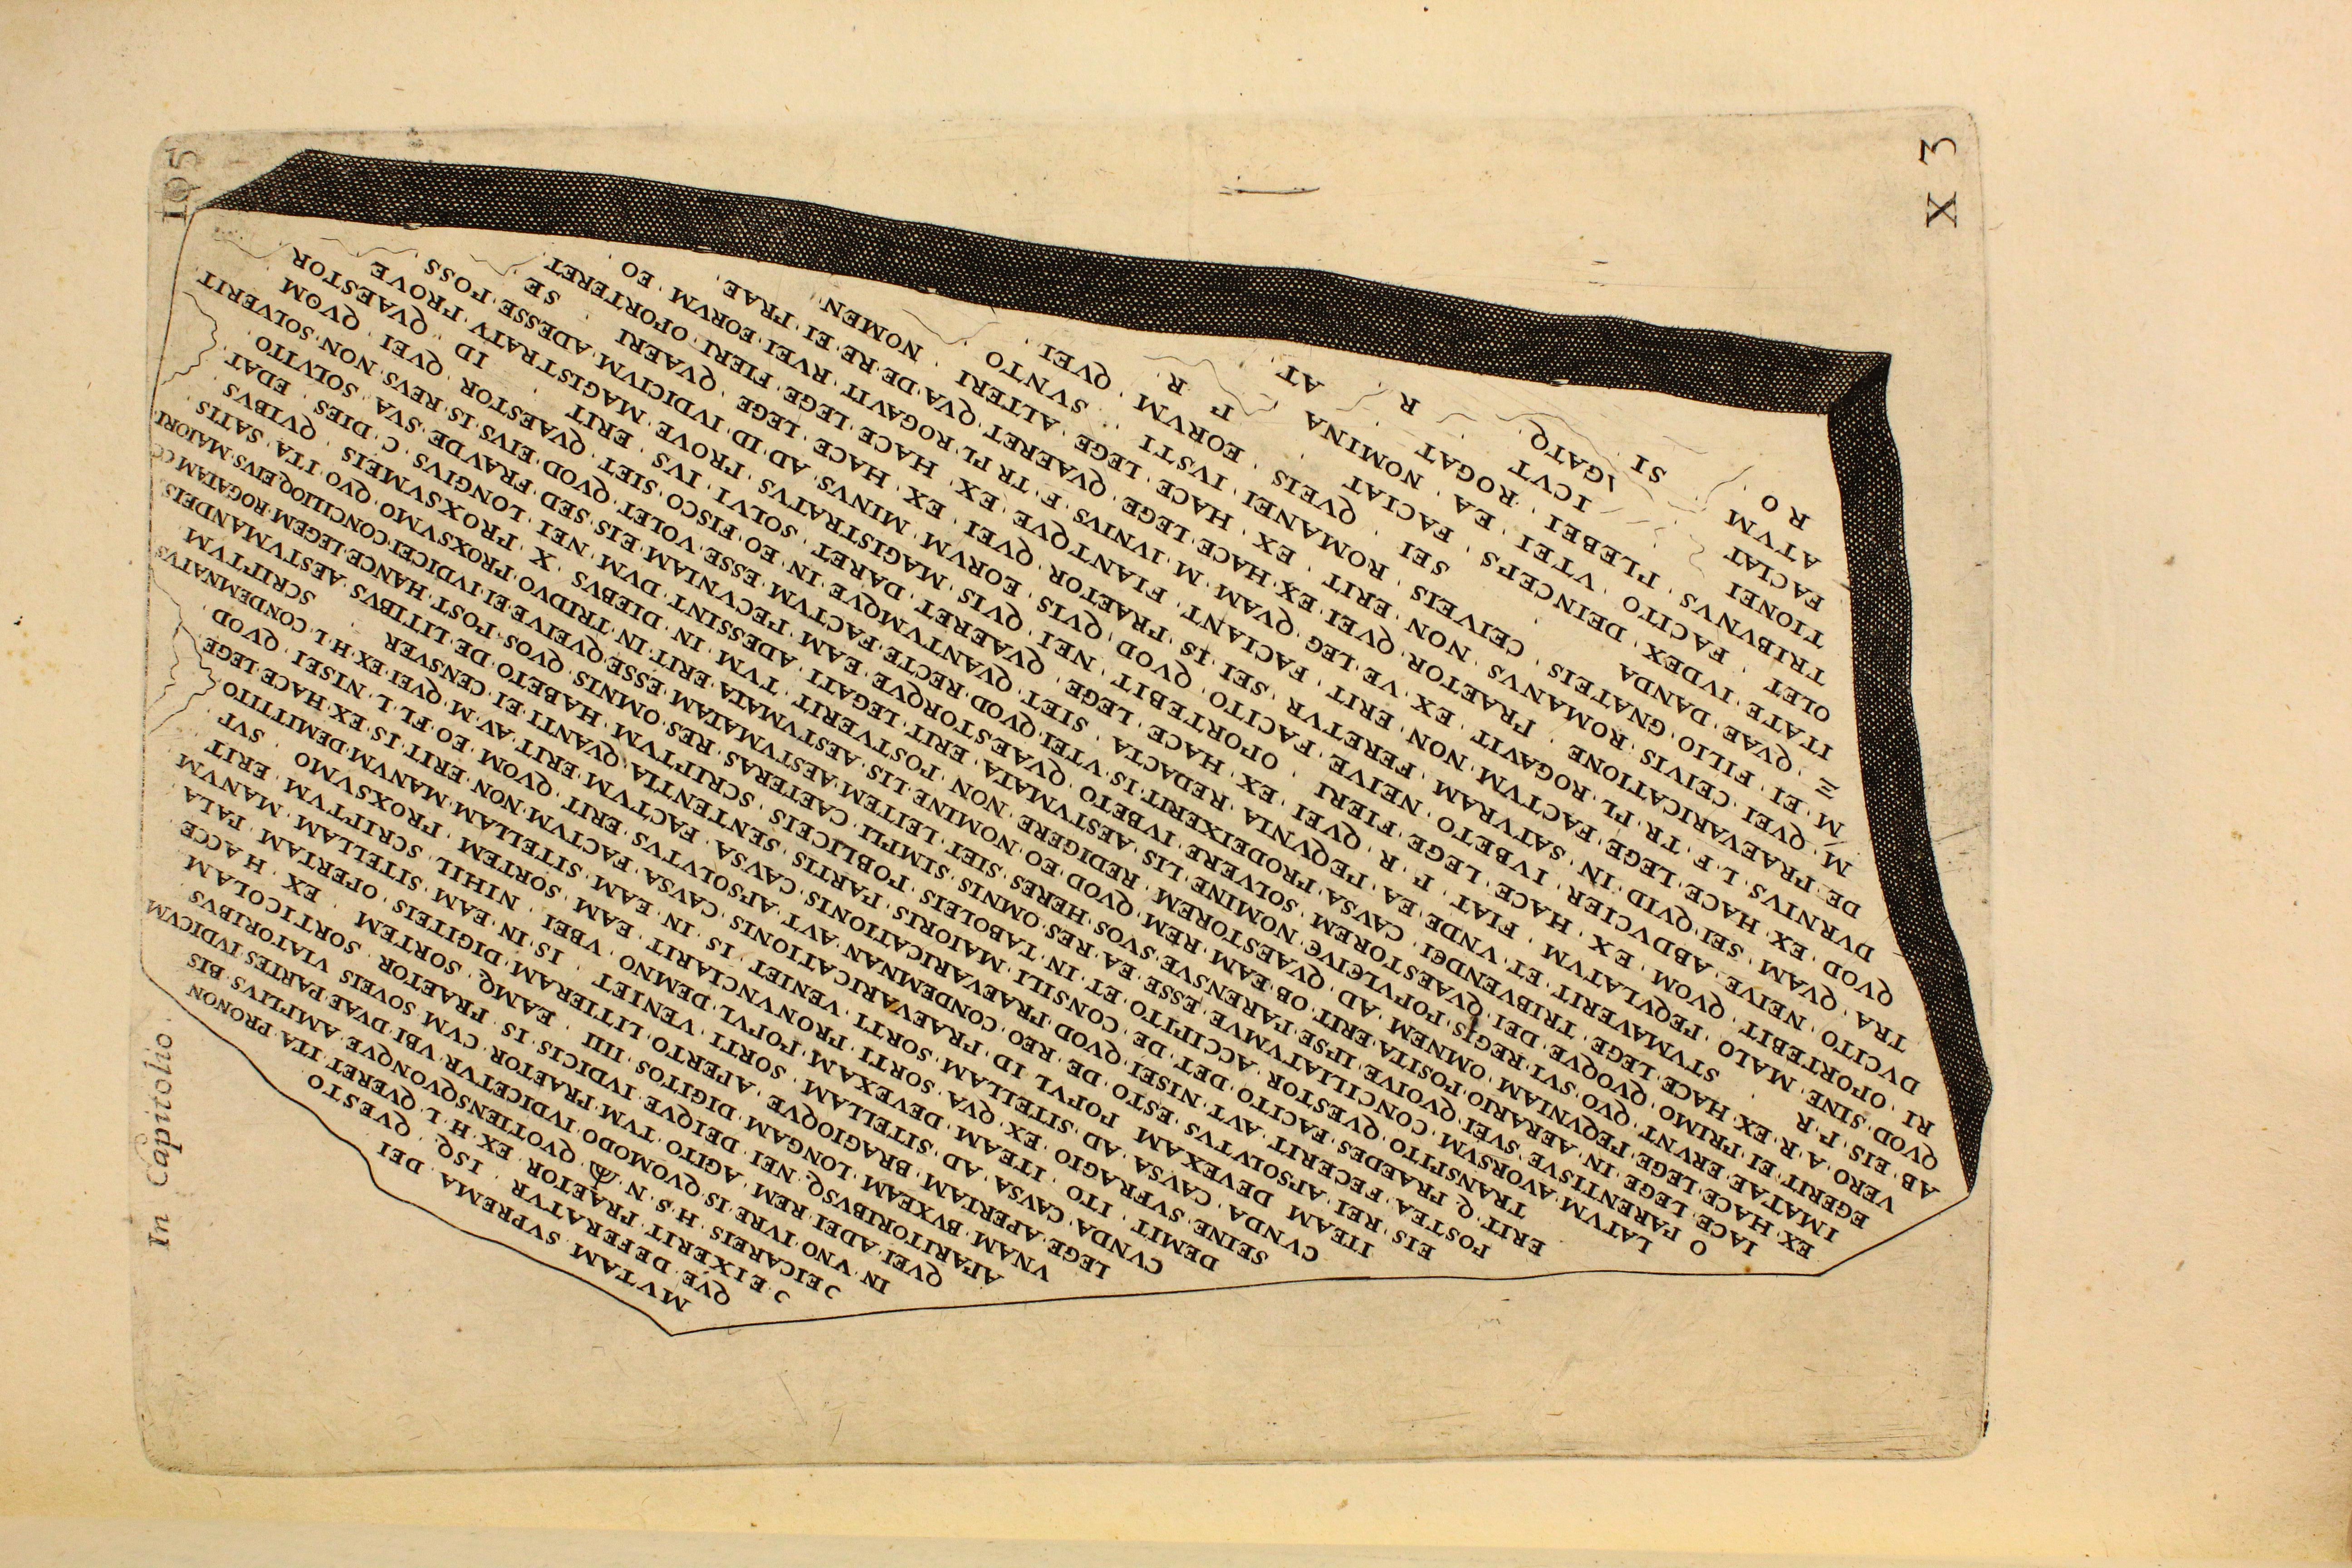 MVTAM · SVPREMA · DEI
QVE · DEFERATVR · ISQ · QVESTO
Ɔ · EIXERIT · PRAETOR · EX · H · L · QVERET · ITA · PRONON
ƆEICAREIS · H · S · N · QVOTIENSQVONQVE · AMPLIVS · BIS
IN · VNO · IVRE · IS · QVOMODO · IVDICETVR · VBI · DVAE · PARTES · IVDICVM
QVEI · ADEI · REM · AGITO · TVM · PRAETOR · CVM · SOVEIS · VIATORIBVS
APARITORIBVSQ · NEI · DEIQVE · IVDICIS · IS · PRAETOR · SORTICOLAM
VNAM · BVXEAM · LONGAM · DIGITOS · IIII · EAMQ · SORTEM · EX · H · ACCE
LEGE · APERTAM · BRAGIOQVE · APERTO · LITTERAM · DIGITEIS · OPERTAM · PALA
CVNDA · CAVSA · AD · SITELLAM · SORTI · VENIET · IS · IN · EAM · SITELLAM · MANVM
DEMIT · ITO · ITEAM · DEVEXAM · POPVL · DEMNO · VBEI · NIHIL · SCRIPTVM · ERIT
SEINE · SVFRAGIO · EX · QVA · SORTI · PRONVNCIARIT · EAM · SORTEM · PROXSVMO · SVT
CVNDA · CAVSA · AD · SITELLAM · SORTI · VENIET · IS · IN · EAM · SITELLAM · MANVM · DEMITTITO
ITEAM · DEVEXAM · POPVL · ID · PRAEVARICATIONIS · CAVSA · FACTVM · NON · ERIT · IS · EX · HACE · LEGE
EIS · REI · APSOLVTVS · ESTO · DE · REO · CONDEMNA · AVT · APSOLVTVS · ERIT · QVOM · EO · FL · L · NISEI · QVOD
POSTEA · FECERIT · AVT · NISEI · QVOD · PRAEVARICATIONIS · CAVSA · FACTVM · ERIT · AV · M · QVEI · EX · H · L · CONDEMNATVS
ERIT · Q · PRAEDES · FACITO · DET · DE · CONSILI · MAIORIS · PARTIS · SENTENTIA · QVANTI · EI · CENSVER · SCRIPTVM
TRANSPITO · QVESTOR · ACCIPITO · ET · IN · TABOLEIS · POBLICEIS · SCRIPTVM · HABETO · DE · LITIBVS · AESTVMANDEIS
LATVM · AVORSVM · CONCILIATVMVE · ESSE · EA · RES · OMNIS · SIMPLI · CAETERAS · RES · OMNIS · QVOS · POST · HANCE · LEGEM · ROGATAM · CO
O · PARENTISVE · SVEI · QVOIVE · IPSE · PARENSVE · SVOS · HERES · SIET · LEITEM · AESTVMATAM · ESSE · QVEIVE · EI · IVDICEI · CONCILIOQ · EIVS · MAIORI
IACE · LEGE · IN · AERARIO · POSITA · ERIT · OB · EAM · REM · QVOD · EO · NOMINE · LIS · AESTVMATA · ERIT · IN · TRIDVO · PROXSVMO · QVO · ITA · SATIS
EX · HACE · LEGE · PEQVNIAM · OMNEM · AD · QVAESTOREM · REDIGERE · NON · POSTVERIT · TVM · IN · DIEBVS · X · PROXSVMEIS · QVIBVS
IMATAE · ERVNT · QVO · SVI · REGIS · POPVLEIVE · NOMINE · LIS · AESTVMATA · ERIT · LEGATI · ADESSINT · DVM · NEI · LONGIVS · C · DIES · EDAT
EGERIT · EI · PRIMO · QVOQVE · DEI · QVAESTOREM · SOLVERE · IVBETO · QVAESTORQVE · EAM · PECVNIAM · EIS · SED · FRAVDE · SVA · SOLVITO
VERO · HACE · LEGE · TRIBVENDEI · CAVSA · PRODEIXERIT · IS · VTEI · QVOD · RECTE · FACTVM · ESSE · VOLET · QVOD · EIVS · IS · REVS · NON · SOLVERIT
AB · A · R · EX · STVMAVERIT · ET · VNDE · EA · PEQVNIA · REDACTA · SIET · QVANTVMQVE · IN · EO · FISCO · SIET · QVAESTOR · QVEI · QVOM
QVOD · EIS · P · R · PEQVLATVM · FIAT · QVEI · EX · HACE · LEGE · QVAERET · DARET · SOLVI · IVS · ERIT · ID · QVAESTOR
RI · OPORTEBIT · QVOM · EX · HACE · LEGE · FIERI · OPORTEBIT · NEI · QVIS · MAGISTRATVS · PROVE · MAGISTRATV · PROVE
DVCITO · NEIVE · ABDVCIER · IVBETO · NEIVE · FACITO · QVOD · QVIS · EORVM · MINVS · AD · ID · IVDICIVM · ADESSE · POSS
TRA · QVAM · SEI · QVID · IN · SATVRAM · FERETVR · SEI · IS · PRAETOR · QVEI · EX · HACE · LEGE · QVAERI · SE
QVOD · EX · HACE · LEGE · FACTVM · NON · ERIT · FACIANT · FIANTQVE · EX · HACE · LEGE · FIERI · OPORTERET
DVRNIVS · L · F · TR · PL · ROGAVIT · EX · VE · LEG · QVAM · M · IVNIVS · F · TR · PL · ROGAVIT · RVEI · EORVM · EO
DE · PRAEVARICATIONE · PRAETOR · QVEI · EX · HACE · LEGE · QVAERET · QVA · DE · RE · EI · PRAE
M · QVEI · CEIVIS · ROMANVS · NON · ERIT · EX · HACE · LEGE · ALTERI · NOMEN
M · EI · FILIO · GNATEIS · CEIVEIS · ROMANEI · IVSTI · SVNTO · QVEI
QVAE · DANDA · SEI · QVEIS · EORVM
ITATE · IVDEX · DEINCEPS · FACIAT · NOMINA · P · R
OLET · FACITO · VTEI · EA · ROGAT · AT
TRIBVNVS · PLEBEI · R
TIONEI · ICVT
FACIAT · GATQ
ATVM · SI
RO
In Capitolio.
105
X 3